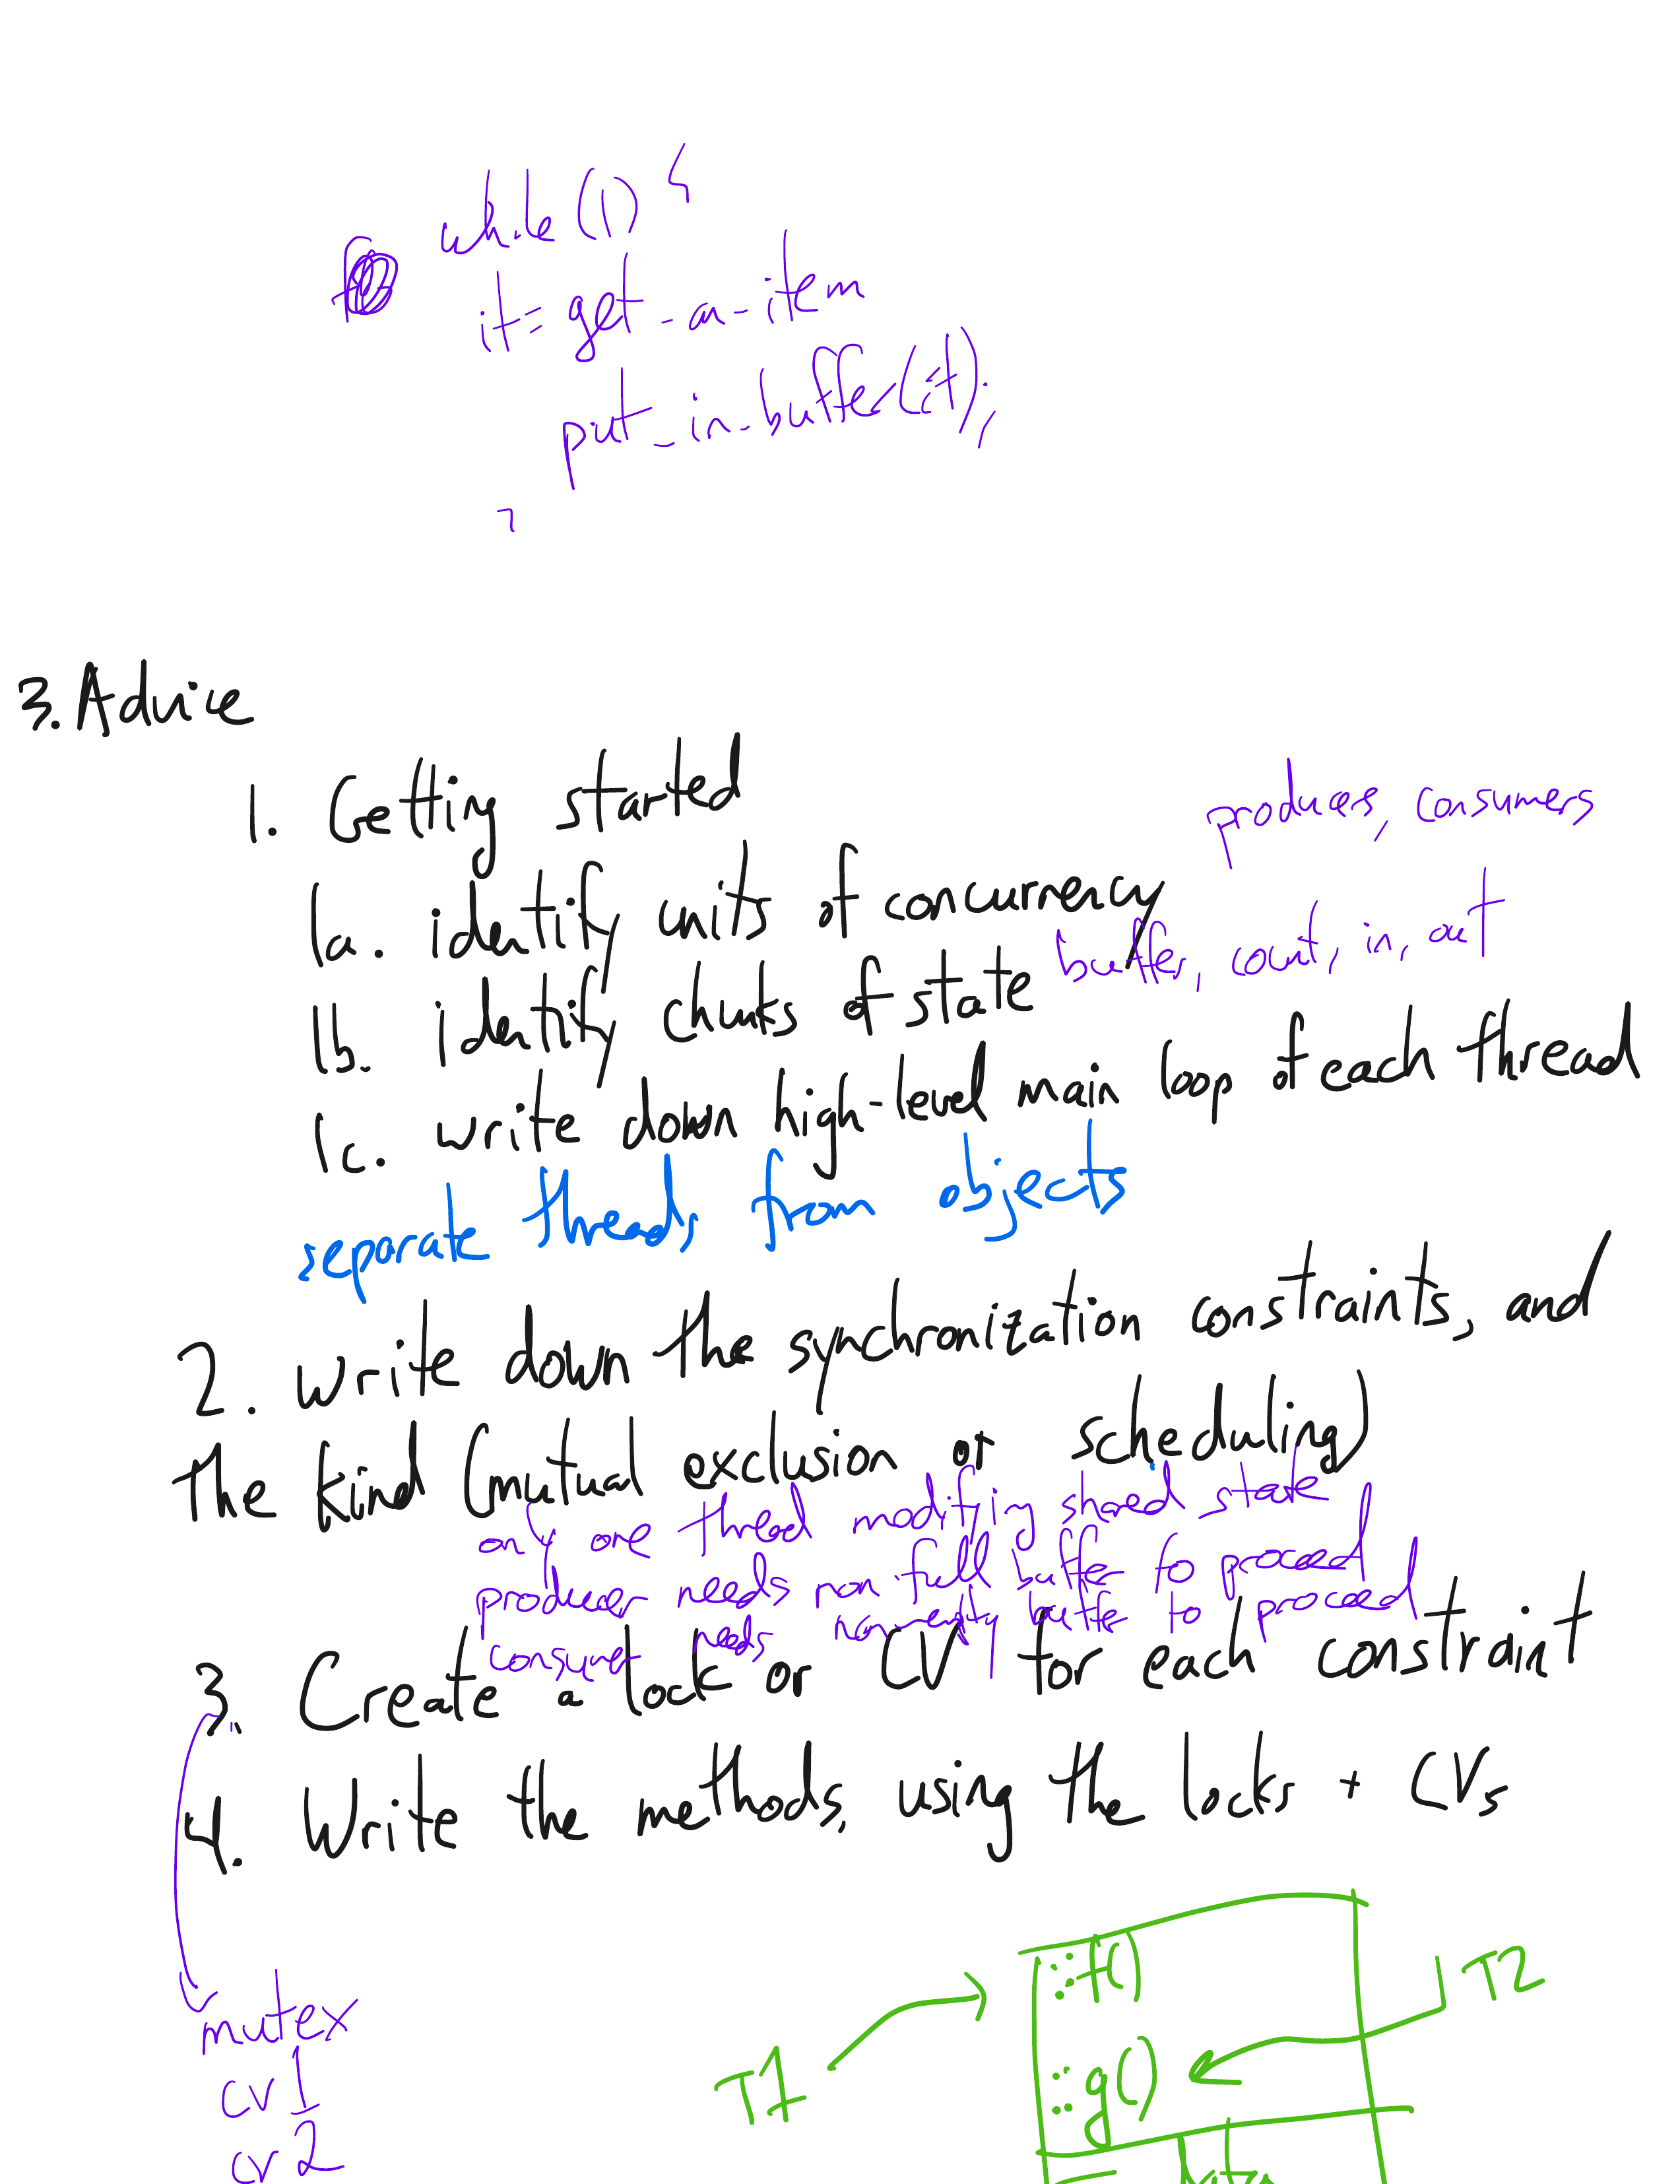 while (1) {
it = get-a-item
put_in_buffer(it);
}
3. Advice
1. Getting started
producers, consumers
1a. identify units of concurrency
buffer, count, in, out
1b. identify chunks of state
1c. write down high-level main loop of each thread
separate threads from objects
2. write down the synchronization constraints, and
the kind (mutual exclusion or scheduling)
only one thread modifying shared state
producer needs non full buffer to proceed
consumer needs nonempty buffer to proceed
3. Create a lock or CV for each constraint
4. Write the methods, using the locks + CVs
mutex
cv1
cv2
T1
::f()
T2
::g()